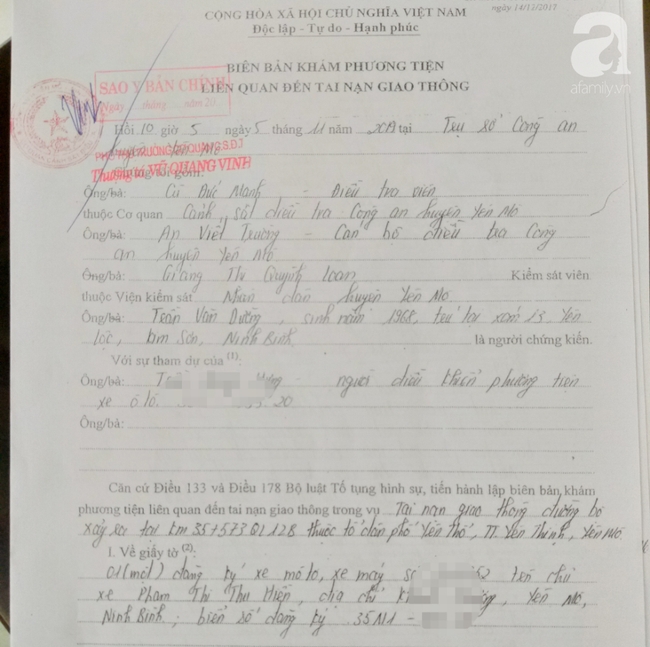 ngày 14/12/2017
CỘNG HÒA XÃ HỘI CHỦ NGHĨA VIỆT NAM
Độc lập - Tự do - Hạnh phúc
a
afamily.vn
BIÊN BẢN KHÁM PHƯƠNG TIỆN
LIÊN QUAN ĐẾN TAI NẠN GIAO THÔNG
SAO Y BẢN CHÍNH
Ngày tháng năm 20
Hồi 10 giờ 5 ngày 5 tháng 11 năm 2017 tại Trụ sở Công an
huyện Yên Mô
Thượng tá VŨ QUANG VINH
Chúng tôi gồm:
Ông/bà: Cù Đức Mạnh - Điều tra viên
thuộc Cơ quan Cảnh sát điều tra Công an huyện Yên Mô
Ông/bà: An Viết Trường - Cán bộ điều tra Công
an huyện Yên Mô
Ông/bà: Giang Thị Quỳnh Loan Kiểm sát viên
thuộc Viện kiểm sát Nhân dân huyện Yên Mô
Ông/bà: Trần Văn Dưỡng, sinh năm 1968, trú tại xóm 13 Yên
Lộc, Kim Sơn, Ninh Bình là người chứng kiến.
Với sự tham dự của (1):
Ông/bà: - người điều khiển phương tiện
xe ô tô 20
Ông/bà:
Căn cứ Điều 133 và Điều 178 Bộ luật Tố tụng hình sự, tiến hành lập biên bản khám
phương tiện liên quan đến tai nạn giao thông trong vụ Tai nạn giao thông đường bộ
xảy ra tại km 35+573 QL12B thuộc tổ dân phố Yên Thổ, TT. Yên Thịnh, Yên Mô.
1. Về giấy tờ (2):
01 (một) đăng ký xe mô tô, xe máy số 52 tên chủ
xe Phạm Thị Thu Hiền, địa chỉ Yên Mô,
Ninh Bình; biển số đăng ký 35N1 -